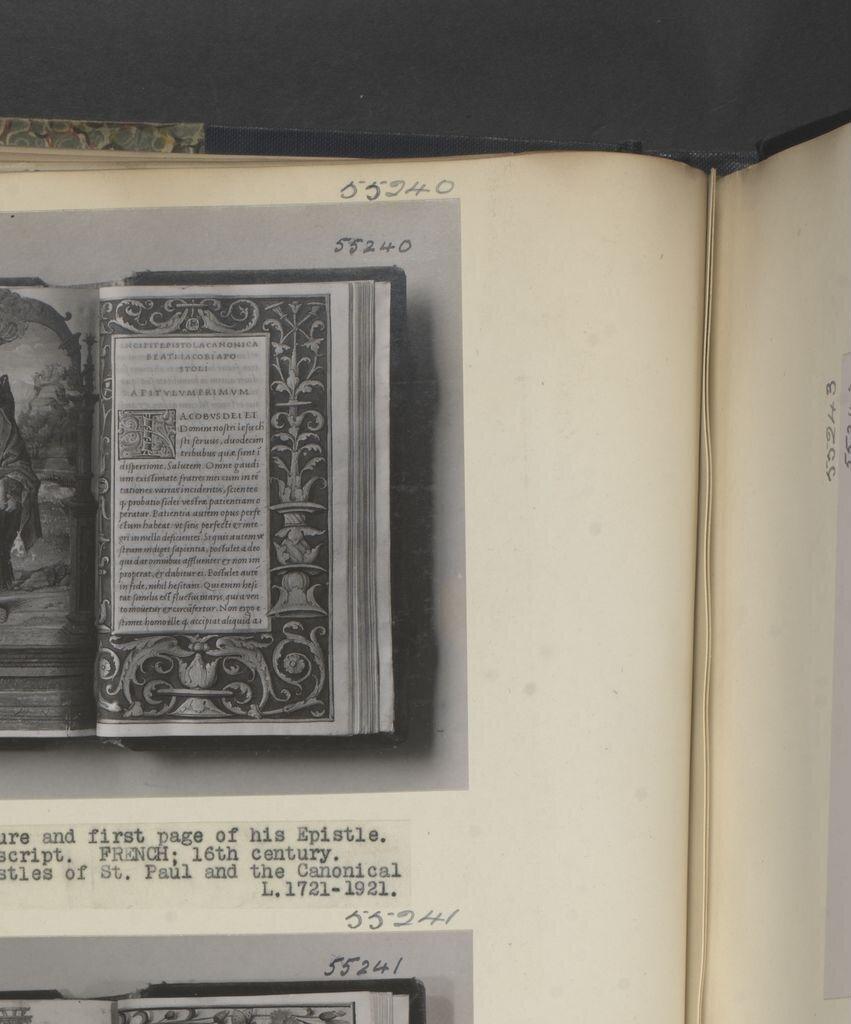 55240
55240
INCIPIT EPISTOLA CANONICA
BEATI IACOBI APO
STOLI
APITVLVM PRIMVM
IACOBVS DEI ET
Domini nostri Iesu ch
sti seruus, duodecim
tribubus quæ sunt i
dispersione. Salutem. Omne gaudi
um existimate fratres mei cum in te
tationes varias incideritis, scientes
q probatio fidei vestræ patientiam o
peratur. Patientia autem opus perfe
ctum habeat vt sitis perfecti & inte
gri in nullo deficientes. Si quis autem ve
strum indiget sapientia, postulet a deo
qui dat omnibus affluenter & non im
properat, & dabitur ei. Postulet aute
in fide, nihil hesitans. Qui enim hesi
tat similis est fluctui maris, qui a ven
to mouetur & circūfertur. Non ergo e
stimet homo ille q accipiat aliquid a
ure and first page of his Epistle.
script. FRENCH; 16th century.
stles of St. Paul and the Canonical
L.1721-1921.
55241
55241
55243